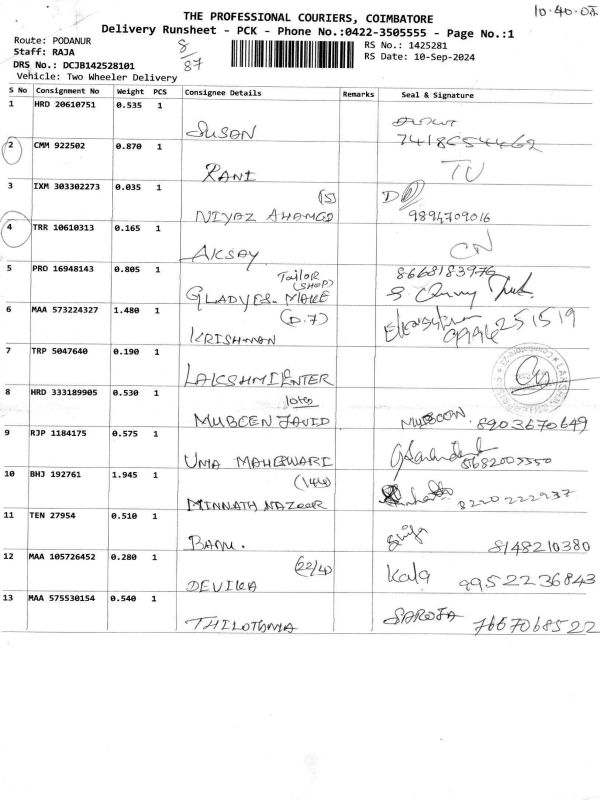 10-40-07
THE PROFESSIONAL COURIERS, COIMBATORE
Delivery Runsheet - PCK - Phone No.:0422-3505555 - Page No.:1
Route: PODANUR
Staff: RAJA
DRS No.: DCJB142528101
Vehicle: Two Wheeler Delivery
8/87
RS No.: 1425281
RS Date: 10-Sep-2024
S No Consignment No Weight PCS Consignee Details Remarks Seal & Signature
1 HRD 20610751 0.535 1
SUSAN 7418654462
2 CMM 922502 0.870 1
RANI
3 IXM 303302273 0.035 1 (5)
NIYAZ AHAMED 9894709016
4 TRR 10610313 0.165 1
AKSAY CN
5 PRO 16948143 0.805 1 Tailor (SHOP) 8668183976
GLADYES. MAKE
6 MAA 573224327 1.480 1 (D.7)
KRISHNAN 9994251519
7 TRP 5047640 0.190 1
LAKSHMI ENTER
8 HRD 333189905 0.530 1
MUBEEN JAVID 8903670649
9 RJP 1184175 0.575 1
UMA MAHESWARI
10 BHJ 192761 1.945 1 (144)
MINNATH NAZEER 8220222937
11 TEN 27954 0.510 1
BANU. 8148210380
12 MAA 105726452 0.280 1 (22/4)
DEVIKA Kala 9952236843
13 MAA 575530154 0.540 1
THILOTHMA SAROJA 7667068522